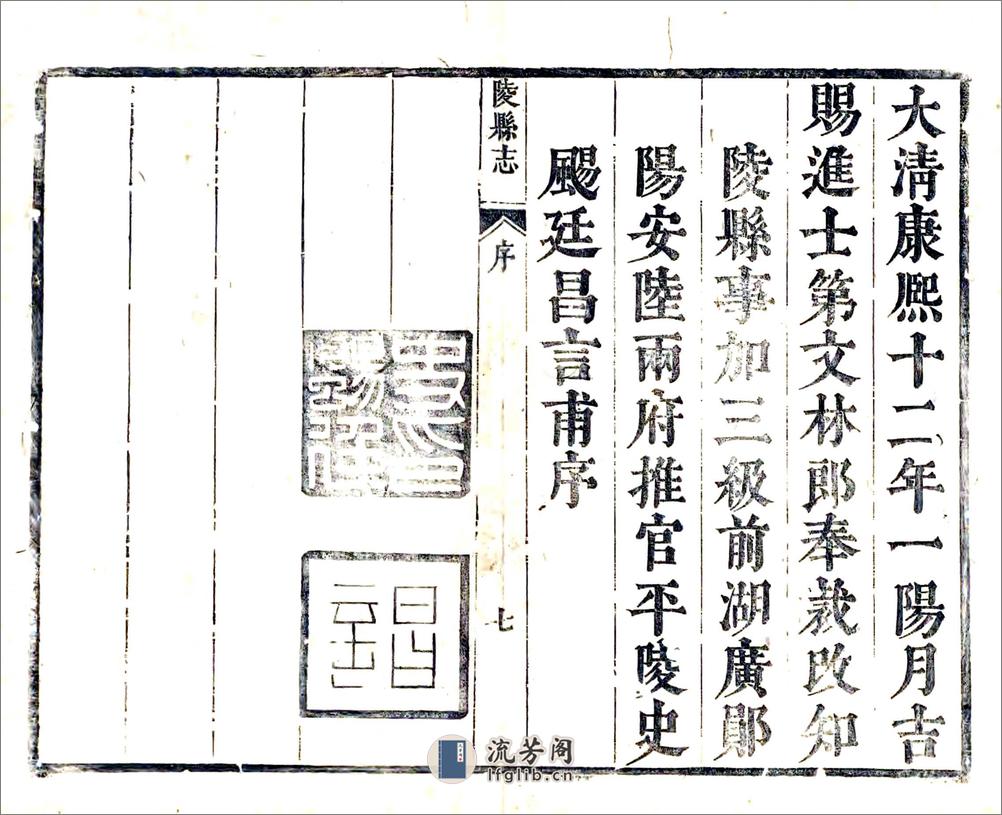 大清康熙十二年一陽月吉
賜進士第文林郎奉裁改知
陵縣事加三級前湖廣鄖
陽安陸兩府推官平陵史
颺廷昌言甫序
陵縣志
序
七
史颺廷印
昌言
流芳阁
lfglib.cn